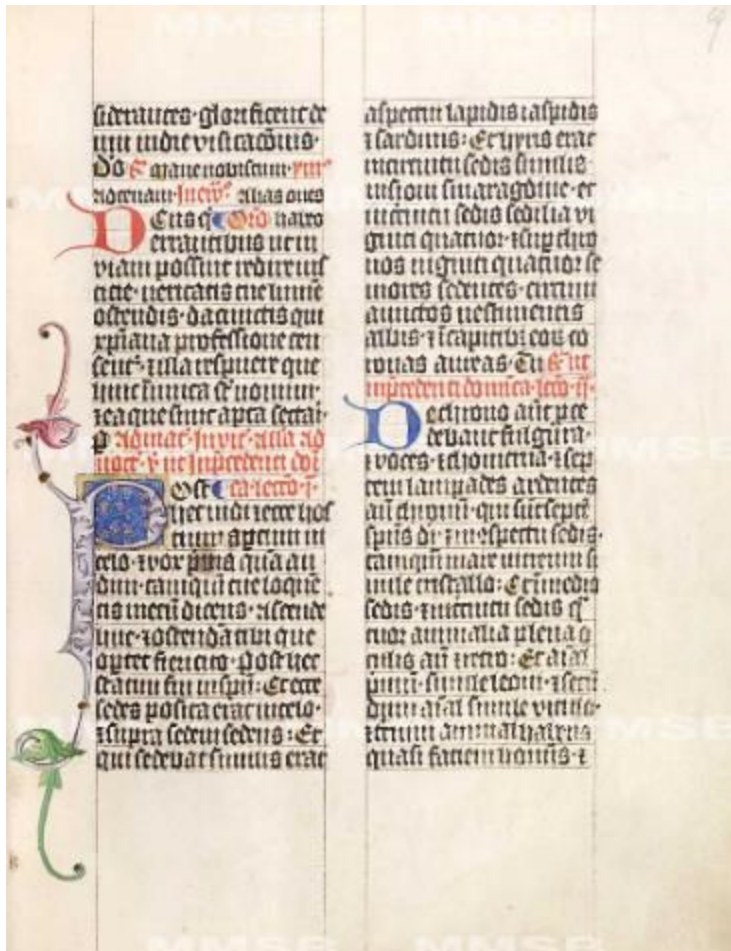 siderantes· glorificent de
um in die visitacōnis·
ad cenam· In ew̄· Alias oues
Deus q̄ Orō habeo
errantibus ut in
viam possint redire ius
ticie· ueritatis tue lumē
ostendis· da cunctis qui
xp̄iana professione cen
sent᷑· ⁊ illa respuere que
huic īimica sūt nomini·
⁊ ea que sunt apta sectari·
p̄ Ad mat· Invit· Alla ad
noct· ṽ ut in p̄cedenti dōi
Post ca· leccō i·
hec vidi ⁊ ecce hos
tium apertum in
celo· ⁊ vox p̄ma quā au
diui tamquā tube loquē
tis mecū dicens· Ascende
huc· ⁊ ostendā tibi que
oportet fieri cito· Post hec
statim fui in spū: Et ecce
sedes posita erat in celo·
⁊ supra sedem sedens: Et
qui sedebat similis erat
aspectui lapidis iaspidis
⁊ sardinis: Et yris erat
in circuitu sedis similis
visioni smaragdine· et
in circuitu sedis sedilia vi
ginti quatuor· ⁊ sup̄ thro
nos viginti quatuor se
niores sedentes· circum
amictos vestimentis
albis· ⁊ in capitibꝫ eoꝝ co
ronas aureas· Tu S̄ ut
in p̄cedenti dōnica· leccō ii·
De throno aūt p̄ce
debant fulgura·
⁊ voces· ⁊ thonitrua· ⁊ sep
tem lampades ardentes
an̄ thronū· qui sūt septē
spūs dī· ⁊ in cōspectu sedis·
tamquā mare vitreum si
mile cristallo: Et ī medio
sedis· ⁊ in circuitu sedis q̄
tuor animalia plena o
culis an̄ ⁊ retro: Et aīal
primū· simile leoni· ⁊ secū
dum aīal simile vitulo·
⁊ tcium animal habens
quasi faciem hominis· ⁊